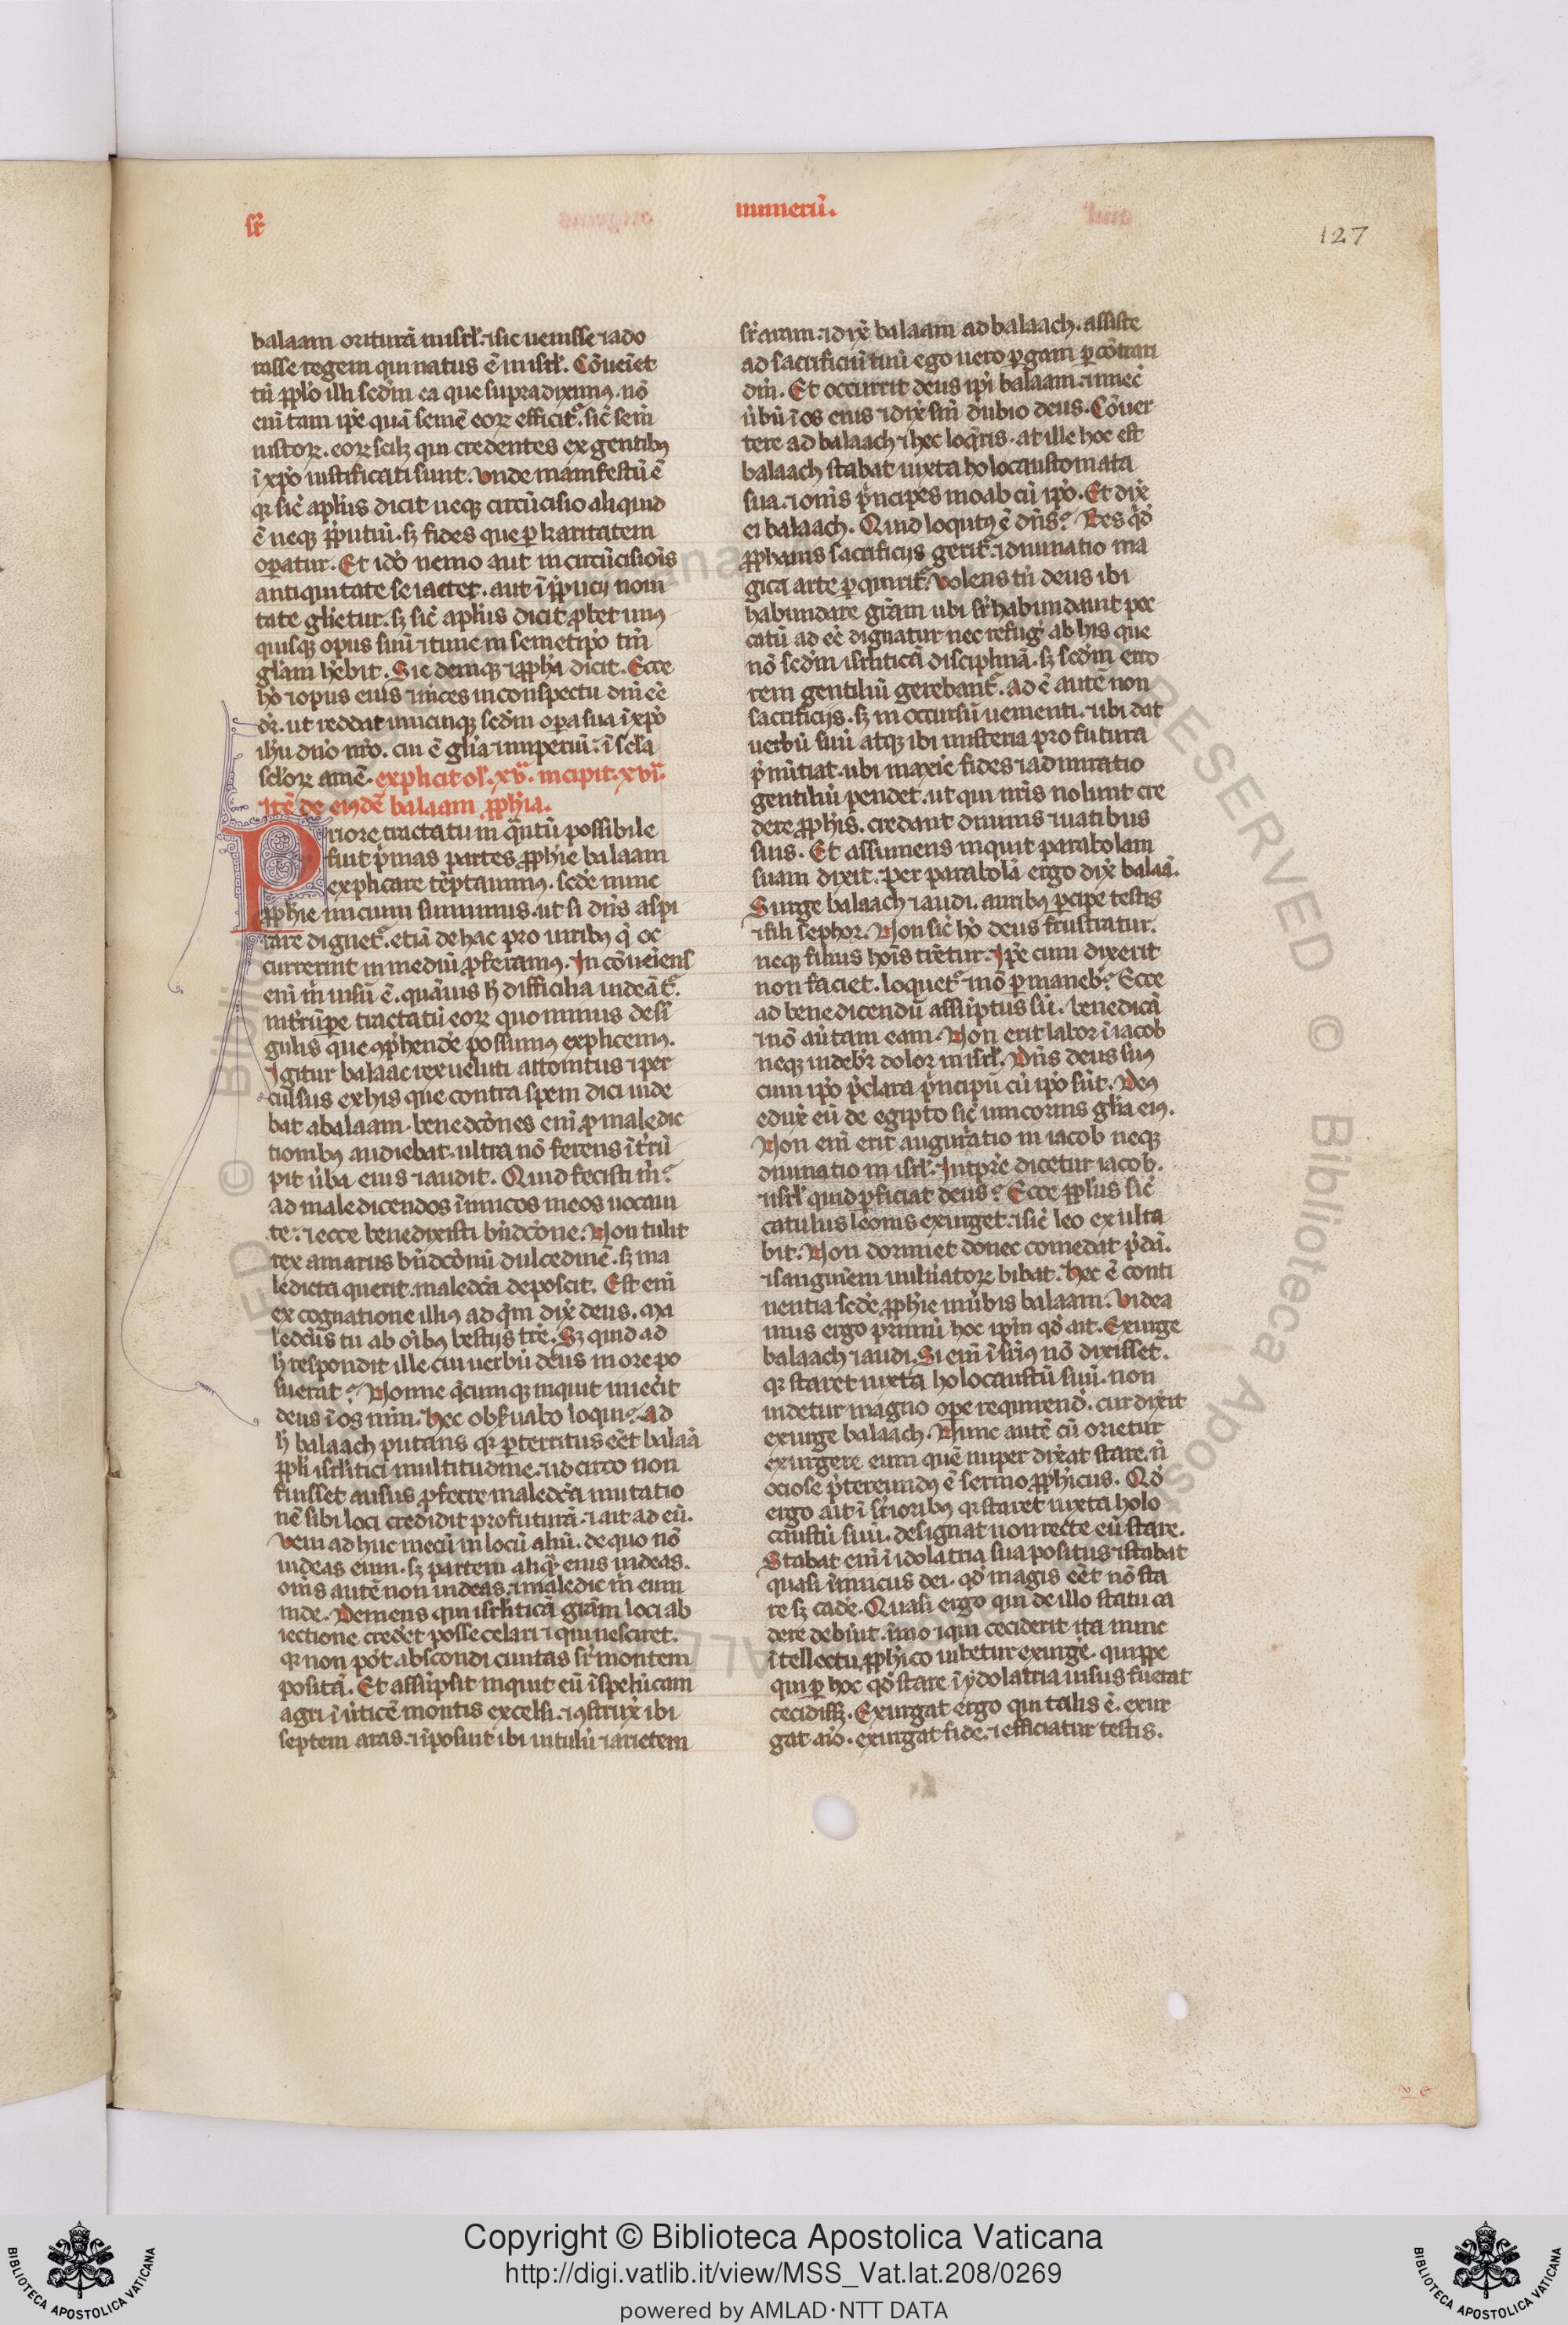 sr̄
numerū.
127
balaam oriturā in isrl'. ⁊ sic uenisse ⁊ ado
rasse regem qui natus ē in isrl'. Cōueīet
tn̄ pp̄lo illi scd̄m ea que supradiximꝰ. nō
eni tam ip̄e quā semē eoꝝ efficit͛. sic̄ sem̄
iustoꝝ. eoꝝ scilꝫ qui credentes ex gentibꝰ
ī xp̄o iustificati sunt. Vnde manifestū ē
qꝛ sic̄ apl'us dicit neqꝫ circūcisio aliquid
ē neqꝫ p̄putiū. sꝫ fides que ꝑ karitatem
oꝑatur. Et idō nemo aut in circūcisiōis
antiquitate se iactet. aut ī p̄pucij noui
tate gl'ietur. sꝫ sic̄ apl'us dicit ꝓbet unꝰ
quisqꝫ opus suū ⁊ tunc in semetip̄o tm̄
gl'am hēbit. Sic deniqꝫ ⁊ ꝓph̄a dicit. Ecce
hō ⁊ opus eius ⁊ m̄ces in conspectu dn̄i eē
dr̄. ut reddat unicuiqꝫ scd̄m oꝑa sua ī xp̄o
ih̄u dn̄o nr̄o. cui ē gl'ia ⁊ imperiū. ī scl'a
scl'oꝝ amē. explicit ol'. xv̄. incipit. xvi.
Itē de eodē balaam ꝓph̄ia.
Priore tractatu in q̄ntū possibile
fuit p̄mas partes ꝓph̄ie balaam
explicare tēptauimꝰ. scd̄e nunc
ꝓph̄ie inicium sumimus. ut si dn̄s aspi
rare dignet͛. etiā de hac pro uiribꝰ q̄ oc
currerint in mediū ꝓferamꝰ. In cōueīens
eni m̄ uisū ē. quāuis h̄ difficilia uideāt͛.
int̄rūpe tractatū eoꝝ quominus de sī
gulis que ꝯp̄hende possumꝰ explicemꝰ.
Igitur balaac rex ueluti attonitus ⁊ per
culsus ex his que contra spem dici uide
bat a balaam. benedc̄ōnes eni ꝓ maledic
tionibꝰ audiebat. ultra nō ferens īt̄rū
pit ūba eius ⁊ audit. Quid fecisti m̄?
ad maledicendos īimicos meos uocaui
te. ⁊ ecce benedixisti bn̄dc̄one. Non tulit
rex amarus bn̄dc̄onū dulcedinē. sꝫ ma
ledicta querit. maledc̄a deposcit. Est eni
ex cognatione illiꝰ ad q̄m dix̄ deus. ma
ledc̄us tu ab oībꝰ bestijs tr̄e. Sꝫ quid ad
h̄ respondit ille cui uerbū deus in ore po
suerat? Nonne q̄cumqꝫ inquit miec̄it
deus ī os mm̄. hec obẜuabo loqui? Ad
h̄ balaach putans qꝛ ꝑterritus eēt balaā
pp̄l'i isrl'itici multitudine. ⁊ idcirco non
fuisset ausus ꝓferre maledc̄a mutatio
nē sibi loci credidit profuturā. ⁊ ait ad eū.
Veni adhuc mecū in locū aliū. de quo nō
uideas eum. sꝫ partem aliq̄ eius uideas.
omīs autē non uideas. ⁊ maledic m̄ eum
inde. Demens qui isrl'iticā gr̄am loci ab
iectione credet posse celari ⁊ qui nesciret.
qꝛ non pōt abscondi ciuitas sr̄ montem
positā. Et assūpsit inquit eū ī spel'ūcam
agri ī ūticē montis excelsi. ⁊ ꝯstrux̄ ibi
septem aras. ⁊ īposuit ibi uitulū ⁊ arietem
sr̄ aram. ⁊ dix̄ balaam ad balaach. assiste
ad sacrificiū tuū ego uero ꝑgam ꝑcōtrari
dm̄. Et occurrit deus ip̄i balaam. ⁊ miec̄
ūbū ī os eius ⁊ dix̄ sin̄ dubio deus. Cōuer
tere ad balaach ⁊ hec loq̄ris. at ille hoc est
balaach stabat iuxta holocaustomata
sua. ⁊ om̄s p̄ncipes moab cū ip̄o. Et dix̄
ei balaach. Quid loqutꝰ ē dn̄s? Res q̄dē
ꝓphanis sacrificijs gerit͛. ⁊ diuinatio ma
gica arte ꝑquirit͛. Volens tn̄ deus ibi
habundare gr̄am ubi sr̄habundauit pec
catū ad eē dignatur nec refuḡ ab his que
nō scd̄m isrl'iticā disciplinā. sꝫ scd̄m erro
rem gentiliū gerebant͛. ad ē autē non
sacrificijs. sꝫ in occursū uenienti. ⁊ ibi dat
uerbū suū atqꝫ ibi misteria pro futura
p̄nūtiat. ubi maxīe fides ⁊ admiratio
gentiliū pendet. ut qui nr̄is nolunt cre
dere ꝓph̄is. credant diuinis ⁊ uatibus
suis. Et assumens inquit parabolam
suam dixit. per parabolā ergo dix̄ balaā.
Surge balaach ⁊ audi. auribꝰ ꝑcipe testis
⁊ fili sephor. Non sic̄ hō deus frustratur.
neqꝫ filius hoīs tr̄etur. Ip̄e cum dixerit
non faciet. loquet͛ ⁊ nō ꝑmaneb̄? Ecce
ad benedicendū assūptus sū. benedicā
⁊ nō aūtam eam. Non erit labor ī iacob
neqꝫ uidebr̄ dolor in isrl'. Dn̄s deus suꝰ
cum ip̄o p̄clara p̄ncipū cū ip̄o sūt. Deꝰ
edux̄ eū de egipto sic̄ unicornis gl'ia eiꝰ.
Non eni erit auguratio in iacob neqꝫ
diuinatio in isrl'. In tp̄re dicetur iacob.
⁊ isrl' quid ꝑficiat deus? Ecce pp̄l'us sic̄
catulus leonis exurget. ⁊ sic̄ leo exulta
bit. Non dormiet donec comedat p̄dā.
⁊ sanguinem uuln̄atoꝝ bibat. Hec ē conti
nentia scd̄e ꝓph̄ie in ūbis balaam. Videa
mus ergo primū hoc ip̄m qd̄ ait. Exurge
balaach ⁊ audi. Si eni ī sup̄ꝰ nō dixisset.
qꝛ staret iuxta holocaustū suū. non
uidetur magno oꝑe requirend̄. cur dixit
exurge balaach. Nunc autē cū orietur
exurgere eum quē nuper dix̄at stare. n̄
ociose p̄tereundꝰ ē sermo ꝓph̄icus. Qd̄
ergo ait ī suꝑioribꝰ qꝛ staret iuxta holo
caustū suū. designat non recte eū stare.
Stabat eni ī idolatria sua positus ⁊ stabat
quasi īimicus dei. qd̄ magis eēt nō sta
re sꝫ cadē. Quasi ergo qui de illo statu ca
dere debūit. īmo ⁊ qui ceciderit ita nunc
ītellectu ꝓph̄ico iubetur exurgē. quippe
qui ꝑ hoc qd̄ stare ī ydolatria uisus fuerat
cecidissꝫ. Exurgat ergo qui talis ē. exur
gat aīo. exurgat fide. ⁊ efficiatur testis.
Copyright © Biblioteca Apostolica Vaticana
http://digi.vatlib.it/view/MSS_Vat.lat.208/0269
powered by AMLAD·NTT DATA
BIBLIOTECA APOSTOLICA VATICANA
BIBLIOTECA APOSTOLICA VATICANA